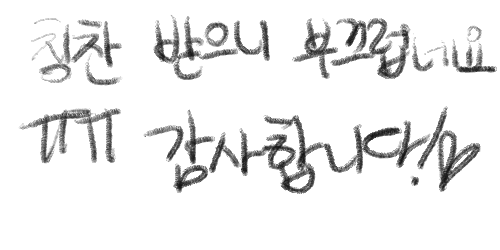 칭찬 받으니 부끄럽네요
ㅠㅠ 감사합니다!♡